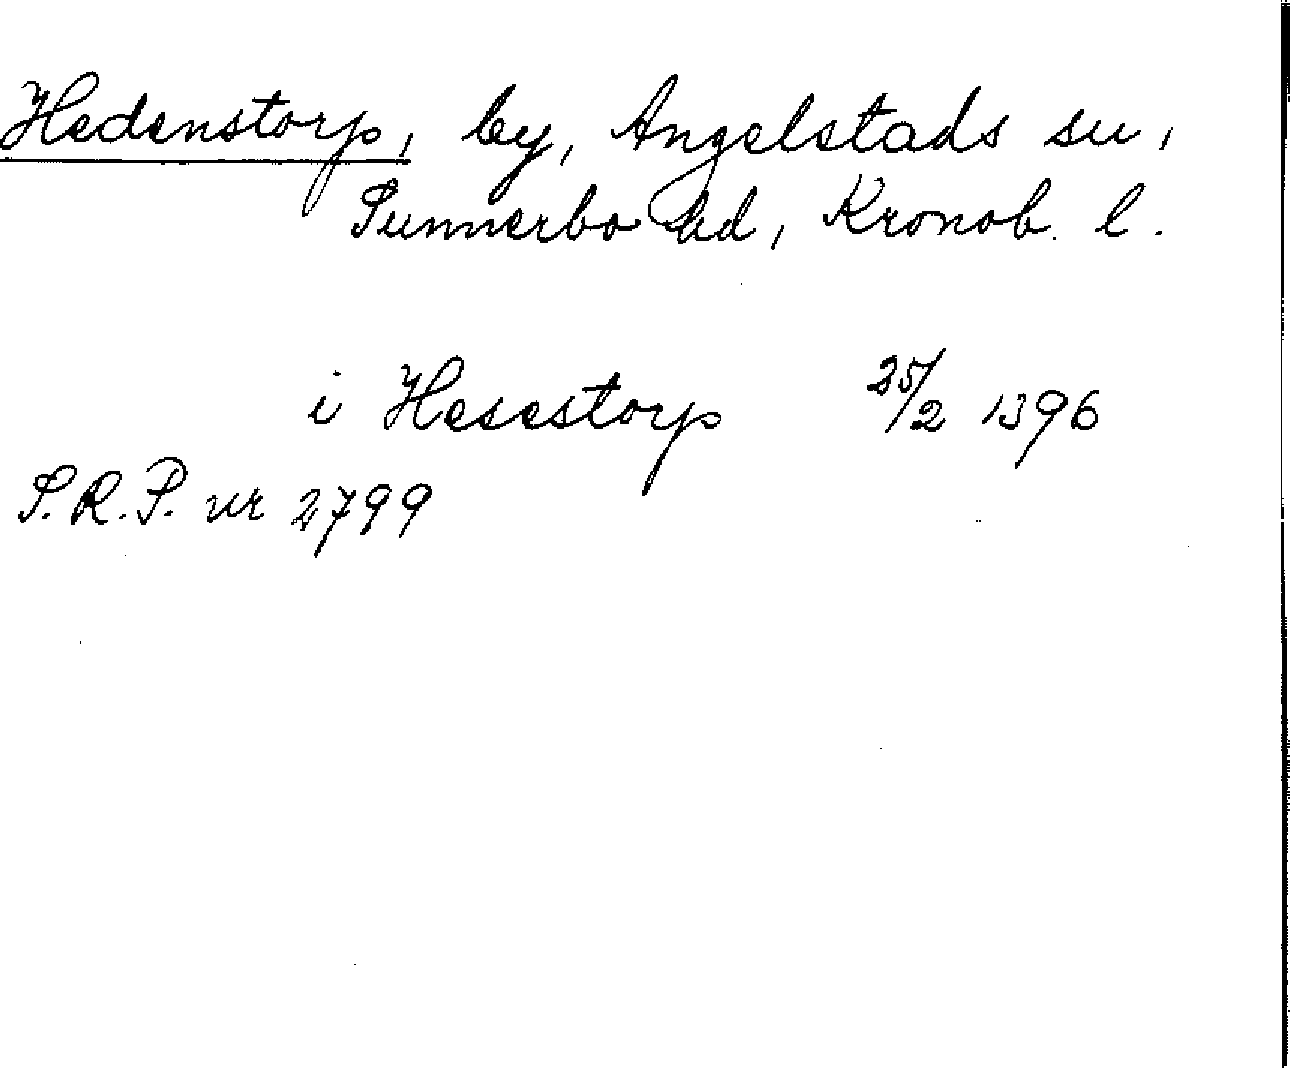 Hedenstorp, by, Angelstads sn,
Sunnerbo hd, Kronob. l.
i Hesestorp 25/2 1396
S.R.P. nr 2799